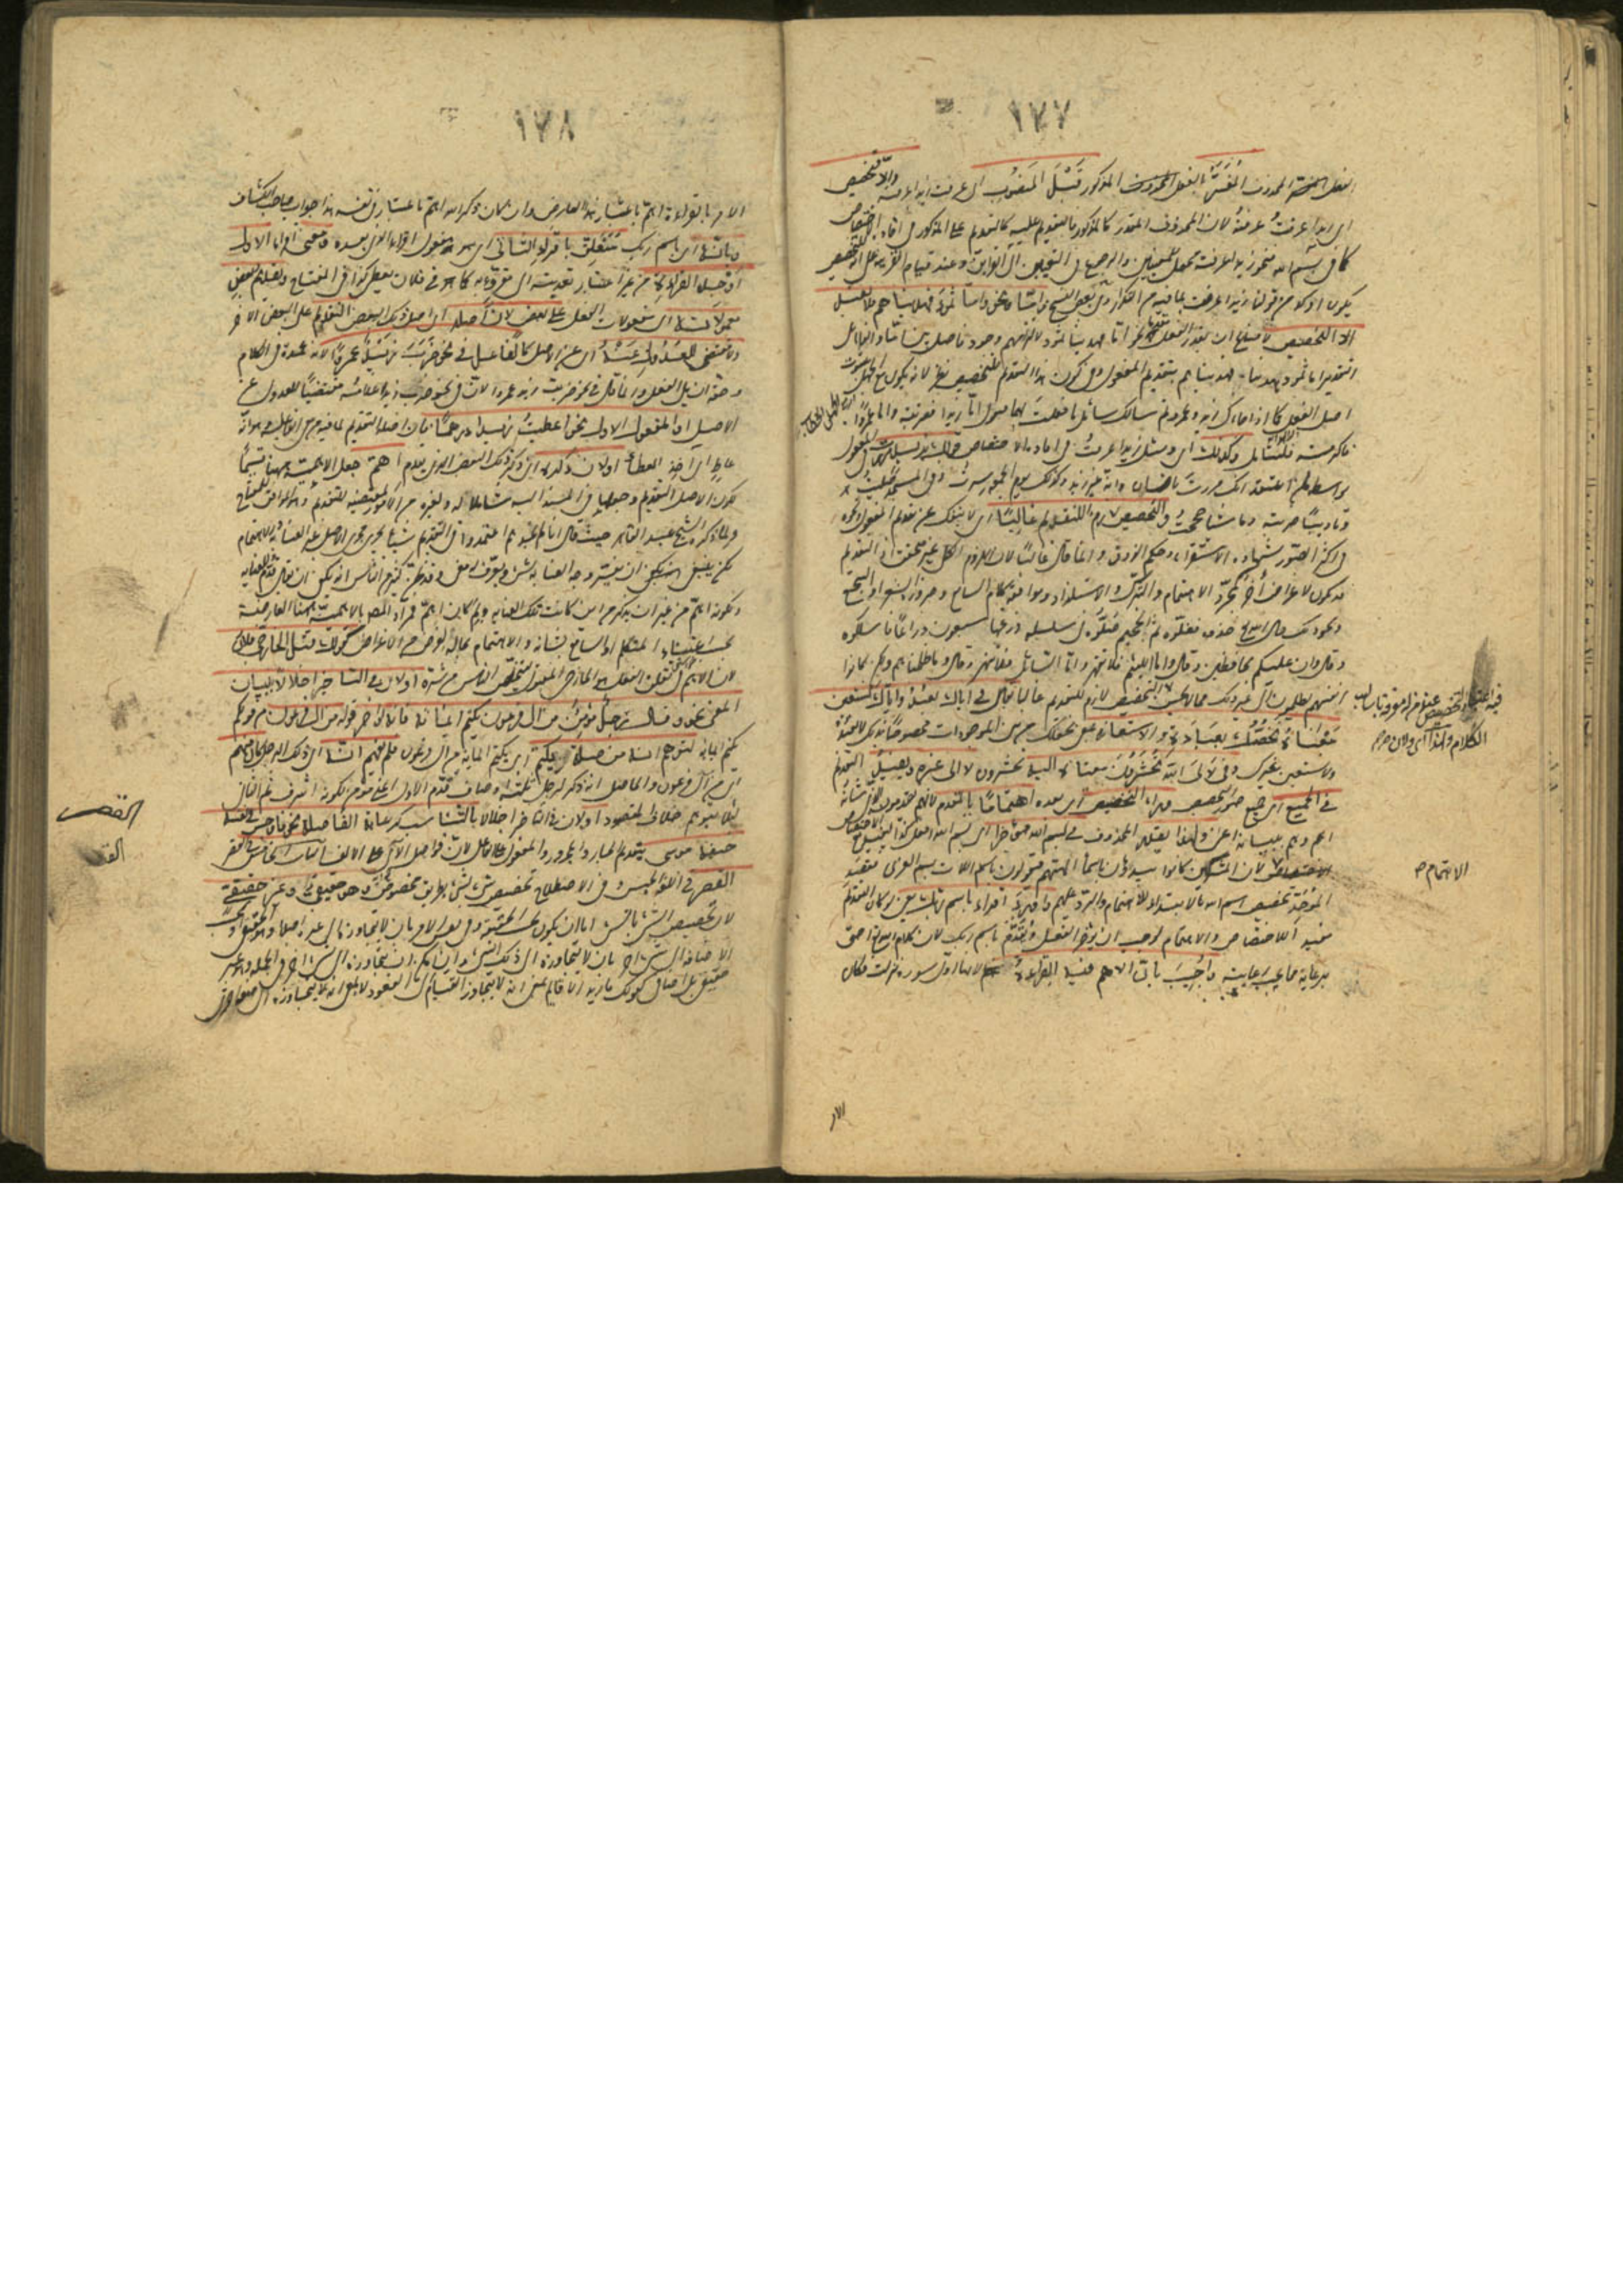 ١٧٧
الفعل المحذوف المُفَسَّر بالفعل المذكور قَبْلَ المنصُوب اى عرفت زيدا عرفته والّا فتخصيص
اى زيدا عرفتُ عرفتهُ لان المحذوف المقدر كالمذكور فالتقديم عليه كالتقديم على المذكور فى افادة الاختصاص
كما فى بسم الله فنحو زيدا عرفته محتمل للمعنيين والرجوع فى التعيين الى القراين وعند قيام القرينة على انه للتخصيص
يكون اوكد من قولنا زيدا عرفت لما فيه من التكرار وفى بعض النسخ وامّا نحو وامّا ثمودَ فهديناهم فلا يفيد
الّا التخصيص لامتناع ان يقدر الفعل مقدما نحو اما فهدينا ثمود لالتزامهم وجود فاصل بين اما والفاء بل
التقدير اما ثمود فهدينا فهديناهم بتقديم المفعول وفى كون هذا التقديم للتخصيص نظر لانه يكون مع الجهل بثبوت
اصل الفعل كما اذا جاءك زيد وعمرو ثم سالك سائل ما فعلت بهما فتقول اما زيدا فضربته واما عمروا
فاكرمته فليتامل وكذلك اى ومثل زيدا عرفتُ فى افادة الاختصاص قولك بزيد مررت فى المفعول
بواسطة لمن اعتقد انك مررت بانسان وانه غير زيد وكذلك يوم الجمعة سرت وفى المسجد صليت
وتاديبًا ضربته وماشيا حججتُ والتخصيص لازم للتقديم غالبًا اى لا ينفك عن تقديم المفعول ونحوه
فى اكثر الصور بشهادة الاستقراء وحكم الذوق وانما قال غالبًا لان اللزوم الكلى غير متحقق اذ التقديم
قد يكون لاغراض اُخر كمجرّد الاهتمام والتبرك والاستلذاذ وموافقة كلام السامع وضرورة الشعر او السجع
ونحو ذلك قال الله تع خذوه فغلّوه ثم الجحيم صلّوه ثم فى سلسلة ذرعها سبعون ذراعًا فاسلكوه
وقال وان عليكم لحافظين وقال واما اليتيم فلا تقهر واما السائل فلا تنهر وقال وما ظلمناهم ولكن كانوا
انفسهم يظلمون الى غير ذلك مما لا يحسن فيه اعتبار التخصيص عند من له معرفة باساليب
الكلام ولهذا اى ولان
التخصيص لازم للتقديم غالبا يقال فى اياك نعبد واياك نستعين
مَعْناه نخصّك بعبادة والاستعانة بمعنى نجعلك من بين الموجودات مخصوصا بذلك لا نعبد
ولا نستعين غيرك وفى لَاِلى الله تُحْشَرُون معناه اليه تحشرون لا الى غيره ويفيد التقديم
فى الجميع اى جميع صور التخصيص وراء التخصيص اى بعده اهتمامًا بالمقدم لانهم يقدمون الذى شانه
اهم وهم ببيانه اعنى ولهذا يقدر المحذوف فى بسم الله مؤخرا اى بسم الله افعل كذا ليفيد مع الاختصاص
الاهتمام لأن المشركين كانوا يبدؤن باسماء الهتهم فيقولون باسم اللات باسم العزى فقصد
الموحّد تخصيص اسم الله بالابتداء للاهتمام والرد عليهم واورد اقراء باسم ربك يعنى لو كان التقديم
مفيد الاختصاص والاهتمام لوجب ان يؤخر الفعل ويقدّم باسم ربك لان كلام الله تع احق
برعاية ما يجب رعايته واُجيب بان الاهم فيه القراءة لانها اول سورة نزلت فكان
الامر
١٧٨
الامر بالقراءة اهم باعتبار هذا العارض وان كان ذكر الله اهم باعتبار نفسه هذا جواب صاحب الكشاف
وبانه اى باسم ربك مُتعلق باقرأ الثانى اى هو مفعول اقراء الذى بعده ومعنى اقراء الاول
أوجد القراءة من غير اعتبار تعديته الى مقروء به كما فى فلان يعطى كذا فى المفتاح وتقديم بعض
معمولاته اى معمولات الفعل على بعض لان اصله اى اصل ذلك البعض التقديم على البعض الاخر
ولا مقتضى للعدول عنه اى عن الاصل كالفاعل فى نحو ضَرَبَ زَيْدٌ عمروًا لانه عمدة فى الكلام
وحقه ان يلى الفعل وانما قال فى نحو ضرب زيد عمروا لان فى نحو ضرب زيدا غلامُه مقتضيًا للعدول عن
الاصل او المفعول الاول نحو اعطيتُ زيدا درهمًا فان اصله التقديم لما فيه من معنى الفاعلية وهو انه
عاطٍ اى آخذ للعطاء او لان ذكره اى ذكر ذلك البعض الذى يقدم اهمّ جعل الاهمية ههنا قسيمًا
لكون الاصل التقديم وجعلها فى المسند اليه شاملا له ولغيره من الامور المقتضية للتقديم وهو الموافق للمفتاح
ولما ذكره الشيخ عبد القاهر حيث قال انا لم نجدهم اعتمدوا فى التقديم شيئا يجرى مجرى الاصل غير العناية والاهتمام
لكن ينبغى ان يفسّر وجه العناية بشئ ويعرف له معنى وقد ظن كثير من الناس انه يكفى ان يقال قدّم للعناية
ولكونه اهمّ من غير ان يذكر من اين كانت تلك العناية وبم كان اهمّ فمراد المص بالاهمية ههنا العارضة
بحسب اعتناء المتكلم او السامع بشانه والاهتمام بحاله لغرض من الاغراض كقولك قتل الخارجى فلان
لان الاهم فى تعلق القتل هو الخارجى المقتول ليتخلص الناس من شره او لان فى التاخير اخلالا ببيان
المعنى نحو وقال رجلٌ مؤمنٌ من ال فرعون يكتم ايمانه فانه لو اخر قوله من ال فرعون عن قوله يكتم
يكتم ايمانه لتوهم انه من صلة يكتم اى يكتم ايمانه من ال فرعون فلم يفهم انه اى ذلك الرجل كان منهم
اى من آل فرعون والحاصل انه ذكر لرجل ثلثة اوصاف قدّم الاول اعنى مؤمن لكونه اشرف ثم الثانى
لئلا يتوهم خلاف المقصود او لان فى التاخير اخلالا بالتناسب كرعاية الفاصلة نحو فاوجس فى نفسه
خيفة موسى بتقديم الجار والمجرور والمفعول على الفاعل لان فواصل الاى على الالف الباب الخامس القصر
القصر فى اللغة الحبس وفى الاصطلاح تخصيص شئ بشئ بطريق مخصوص وهو حقيقى وغير حقيقى
لان تخصيص الشئ بالشئ اما ان يكون بحسب الحقيقة وفى نفس الامر بان لا يتجاوزه الى غيره اصلا وهو الحقيقى او بحسب
الاضافة الى شئ اخر بان لا يتجاوزه الى ذلك الشئ وان امكن ان يتجاوزه الى شئ اخر فى الجملة وهو غير
حقيقى بل اضافى كقولك ما زيد الا قائم بمعنى انه لا يتجاوز القيام الى القعود لا بمعنى انه لا يتجاوزه الى صفة اخرى
القصر
الاهتمام صح